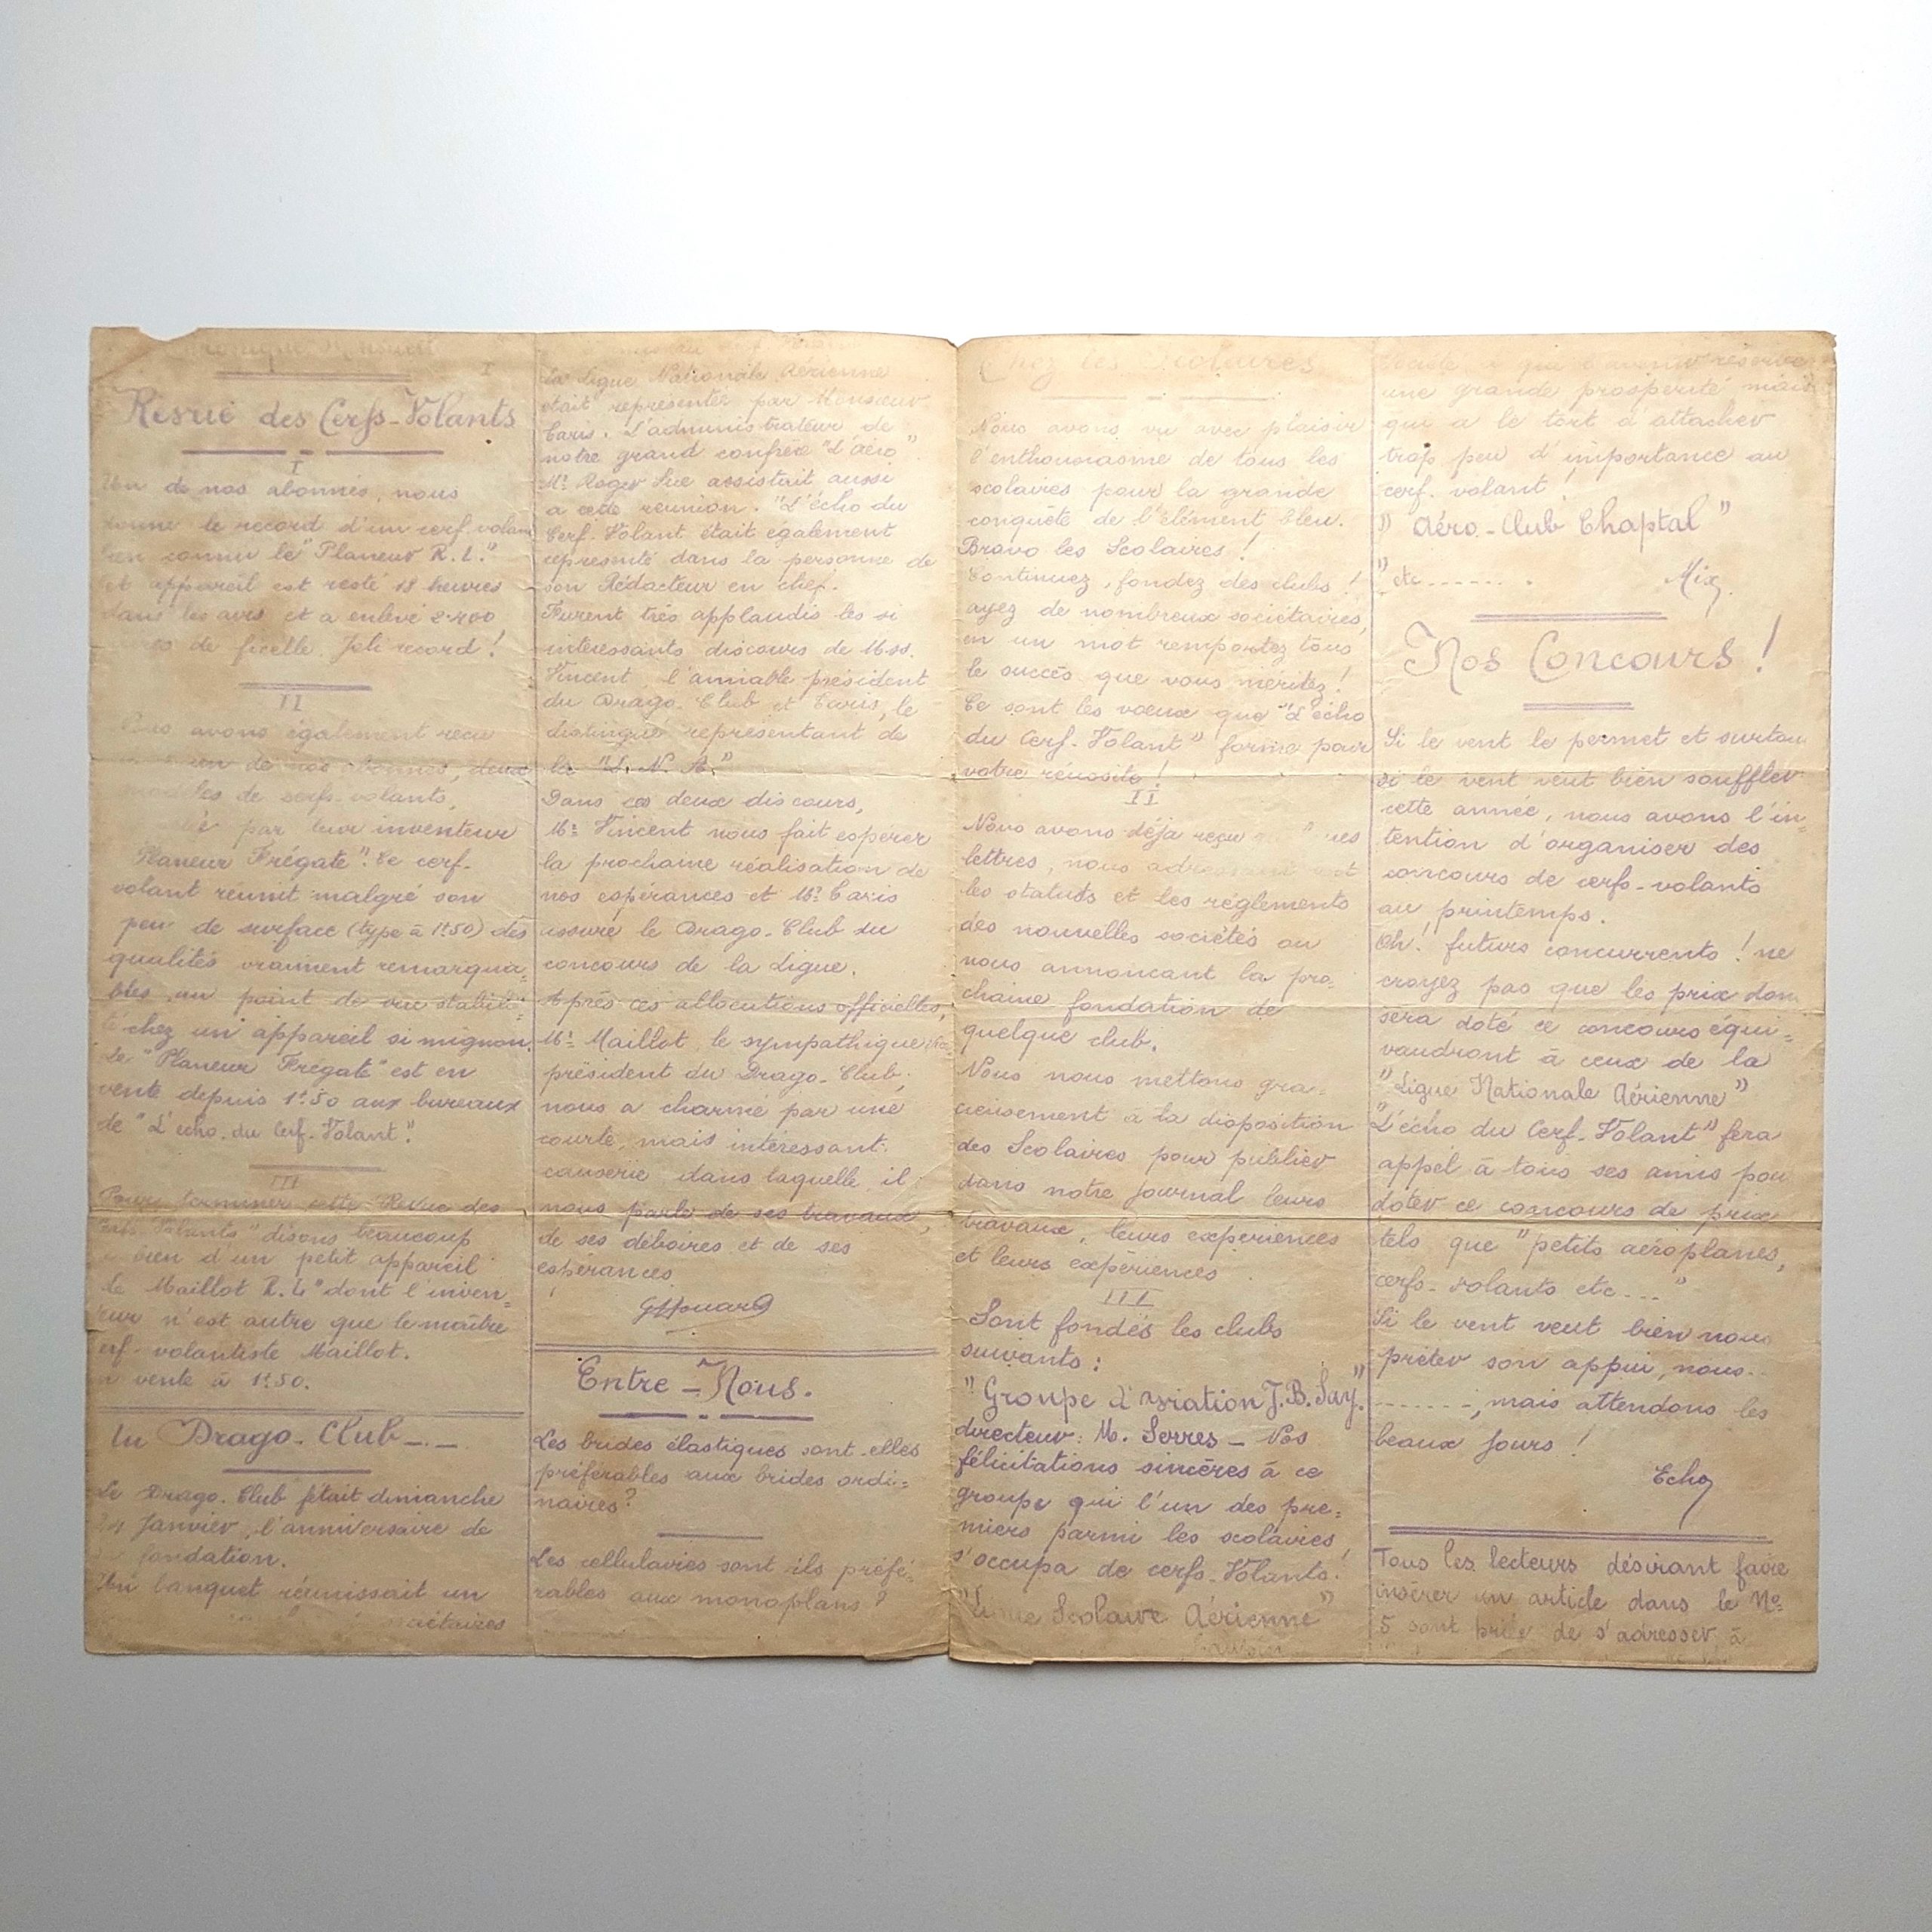 I
Revue des Cerfs-Volants
I
Un de nos abonnés, nous
donne le record d'un cerf-volant
bien connu le "Planeur R. L."
et appareil est resté 18 heures
dans les airs et a enlevé 2.400
de ficelle. Joli record!
II
avons également reçu
de nos abonnés, deux
modèles de cerfs-volants,
par leur inventeur
Planeur Frégate". Ce cerf-
volant réunit malgré son
peu de surface (type à 1f50) des
qualités vraiment remarqua=
bles au point de vue stabili=
té chez un appareil si mignon.
Le "Planeur Frégate" est en
vente depuis 1f50 aux bureaux
de "L'écho du Cerf-Volant".
III
Pour terminer cette "Revue des
Cerfs-Volants" disons beaucoup
bien d'un petit appareil
le Maillot R. L" dont l'inven=
teur n'est autre que le maître
cerf-volantiste Maillot.
en vente à 1f50.
Au Drago-Club-.-
Le Drago-Club fêtait dimanche
24 Janvier, l'anniversaire de
fondation.
Un banquet réunissait un
sociétaires
La Ligue Nationale Aérienne
était représentée par Monsieur
Caris. L'administrateur de
notre grand confrère "L'aéro"
Mr Roger Sue assistait aussi
a cette réunion. "L'écho du
Cerf-Volant était également
représenté dans la personne de
son Rédacteur en chef.
Furent très applaudis les si
intéressants discours de M.ss.
Vincent, l'aimable président
du Drago-Club et Caris, le
distingué représentant de
la "L. N. A."
Dans ces deux discours,
Mr Vincent nous fait espérer
la prochaine réalisation de
nos espérances et Mr Caris
assure le Drago-Club du
concours de la Ligue.
Après ces allocutions officielles,
Mr Maillot le sympathique
président du Drago-Club,
nous a charmé par une
courte, mais intéressant
causerie dans laquelle il
nous parle de ses travaux,
de ses déboires et de ses
espérances.
Entre-Nous.
Les brides élastiques sont-elles
préférables aux brides ordi=
naires?
Les cellulaires sont-ils préfé=
rables aux monoplans?
Chez les Scolaires
Nous avons vu avec plaisir
l'enthousiasme de tous les
scolaires pour la grande
conquête de l'élément bleu.
Bravo les Scolaires!
Continuez, fondez des clubs!
ayez de nombreux sociétaires,
en un mot remportez tous
le succès que vous méritez!
Ce sont les voeux que "L'écho
du Cerf-Volant" forme pour
votre réussite!
II
Nous avons déja reçu
lettres, nous adressant
les statuts et les règlements
des nouvelles sociétés ou
nous annoncant la pro=
chaine fondation de
quelque club.
Nous nous mettons gra=
cieusement à la disposition
des Scolaires pour publier
dans notre journal leurs
travaux, leurs expériences
et leurs expériences.
III
Sont fondés les clubs
suivants:
"Groupe d'aviation J.B. Say".
directeur: M. Serres - Nos
félicitations sincères à ce
groupe qui l'un des pre=
miers parmi les scolaires,
s'occupa de cerfs-Volants!
"Ligue Scolaire Aérienne"
à qui l'avenir réserve
une grande prospérité mais
qui a le tort d'attacher
trop peu d'importance au
cerf-volant!
"Aéro-Club Chaptal"
"etc.......
Mix.
Nos Concours!
Si le vent le permet et surtout
si le vent veut bien souffler
cette année, nous avons l'in=
tention d'organiser des
concours de cerfs-volants
au printemps.
Oh! futurs concurrents! ne
croyez pas que les prix dont
sera doté ce concours équi=
vaudront à ceux de la
"Ligue Nationale Aérienne"
"L'écho du Cerf-Volant" fera
appel à tous ses amis pour
doter ce concours de prix
tels que "petits aéroplanes,
cerfs-volants etc..."
Si le vent veut bien nous
prêter son appui, nous..
.......; mais attendons les
beaux jours!
Echo
Tous les lecteurs désirant faire
insérer un article dans le No
5 sont priés de s'adresser à